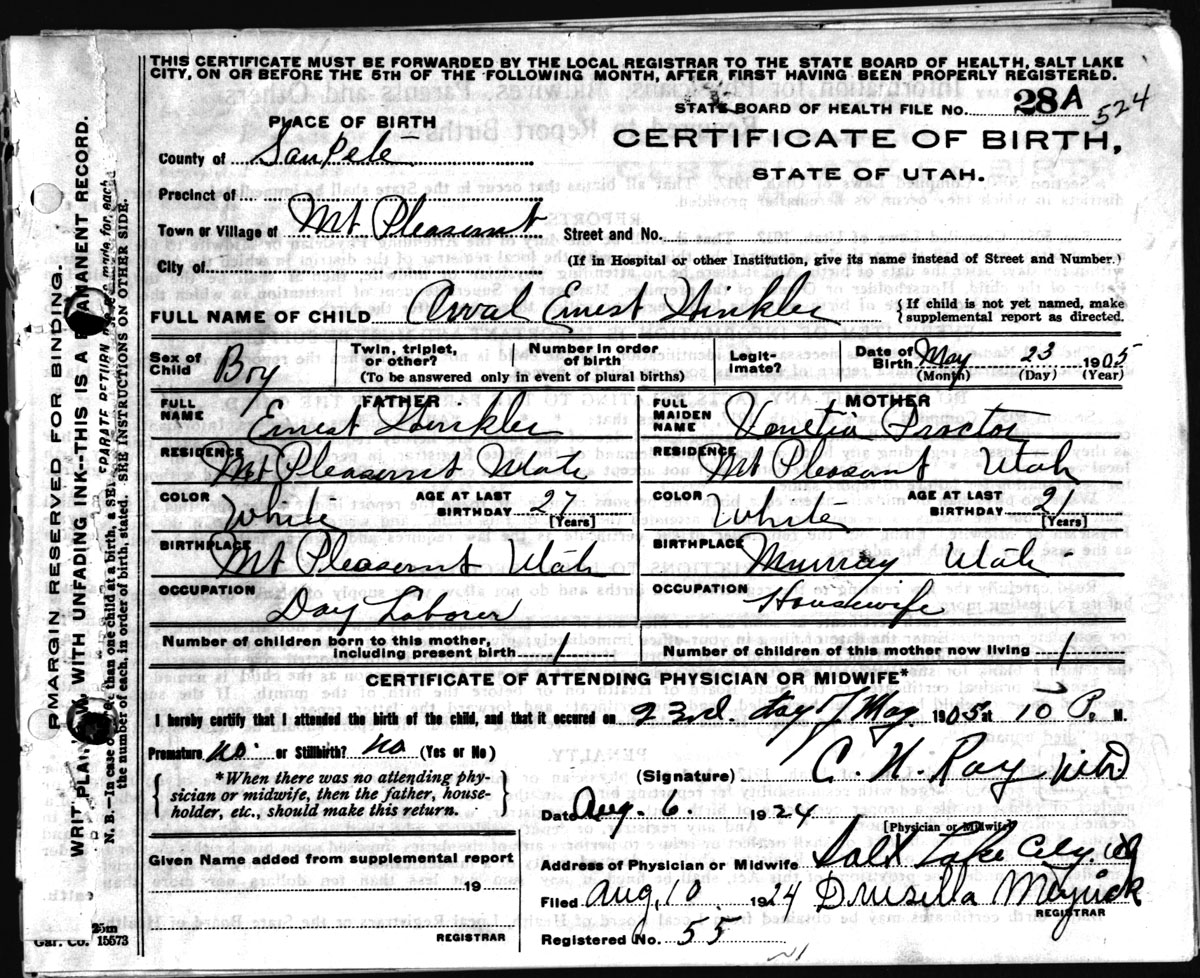 THIS CERTIFICATE MUST BE FORWARDED BY THE LOCAL REGISTRAR TO THE STATE BOARD OF HEALTH, SALT LAKE
CITY, ON OR BEFORE THE 5TH OF THE FOLLOWING MONTH, AFTER FIRST HAVING BEEN PROPERLY REGISTERED.
STATE BOARD OF HEALTH FILE No. 28A 524
PLACE OF BIRTH
CERTIFICATE OF BIRTH,
County of Sanpete
STATE OF UTAH.
Precinct of
Town or Village of Mt Pleasant Street and No.
City of (If in Hospital or other Institution, give its name instead of Street and Number.)
FULL NAME OF CHILD Orval Ernest Hinkler { If child is not yet named, make supplemental report as directed.
Sex of Child Boy Twin, triplet, or other? Number in order of birth? Legitimate? Date of Birth May 23 1905
(To be answered only in event of plural births) (Month) (Day) (Year)
FATHER MOTHER
FULL NAME Ernest Hinkler FULL MAIDEN NAME Venetia Proctor
RESIDENCE Mt Pleasant Utah RESIDENCE Mt Pleasant Utah
COLOR White AGE AT LAST BIRTHDAY 27 [Years] COLOR White AGE AT LAST BIRTHDAY 21 (Years)
BIRTHPLACE Mt Pleasant Utah BIRTHPLACE Murray Utah
OCCUPATION Day Laborer OCCUPATION Housewife
Number of children born to this mother, including present birth 1 Number of children of this mother now living 1
CERTIFICATE OF ATTENDING PHYSICIAN OR MIDWIFE*
I hereby certify that I attended the birth of the child, and that it occured on 23rd. day of May 1905 at 10 P. M.
Premature no. or Stillbirth? no (Yes or No)
{ *When there was no attending physician or midwife, then the father, householder, etc., should make this return. }
(Signature) C. N. Ray MD
Date Aug. 6. 1924
[Physician or Midwife]
Given Name added from supplemental report
Address of Physician or Midwife Salt Lake City
19
Filed Aug, 10 1924 Drusilla
REGISTRAR
REGISTRAR
Registered No. 55
25m
Gar. Co. 15573
MARGIN RESERVED FOR BINDING.
WRITE PLAINLY WITH UNFADING INK--THIS IS A PERMANENT RECORD.
N. B.--In case of more than one child at a birth, a SEPARATE RETURN must be made for each
the number of each, in order of birth, stated. SEE INSTRUCTIONS ON OTHER SIDE.